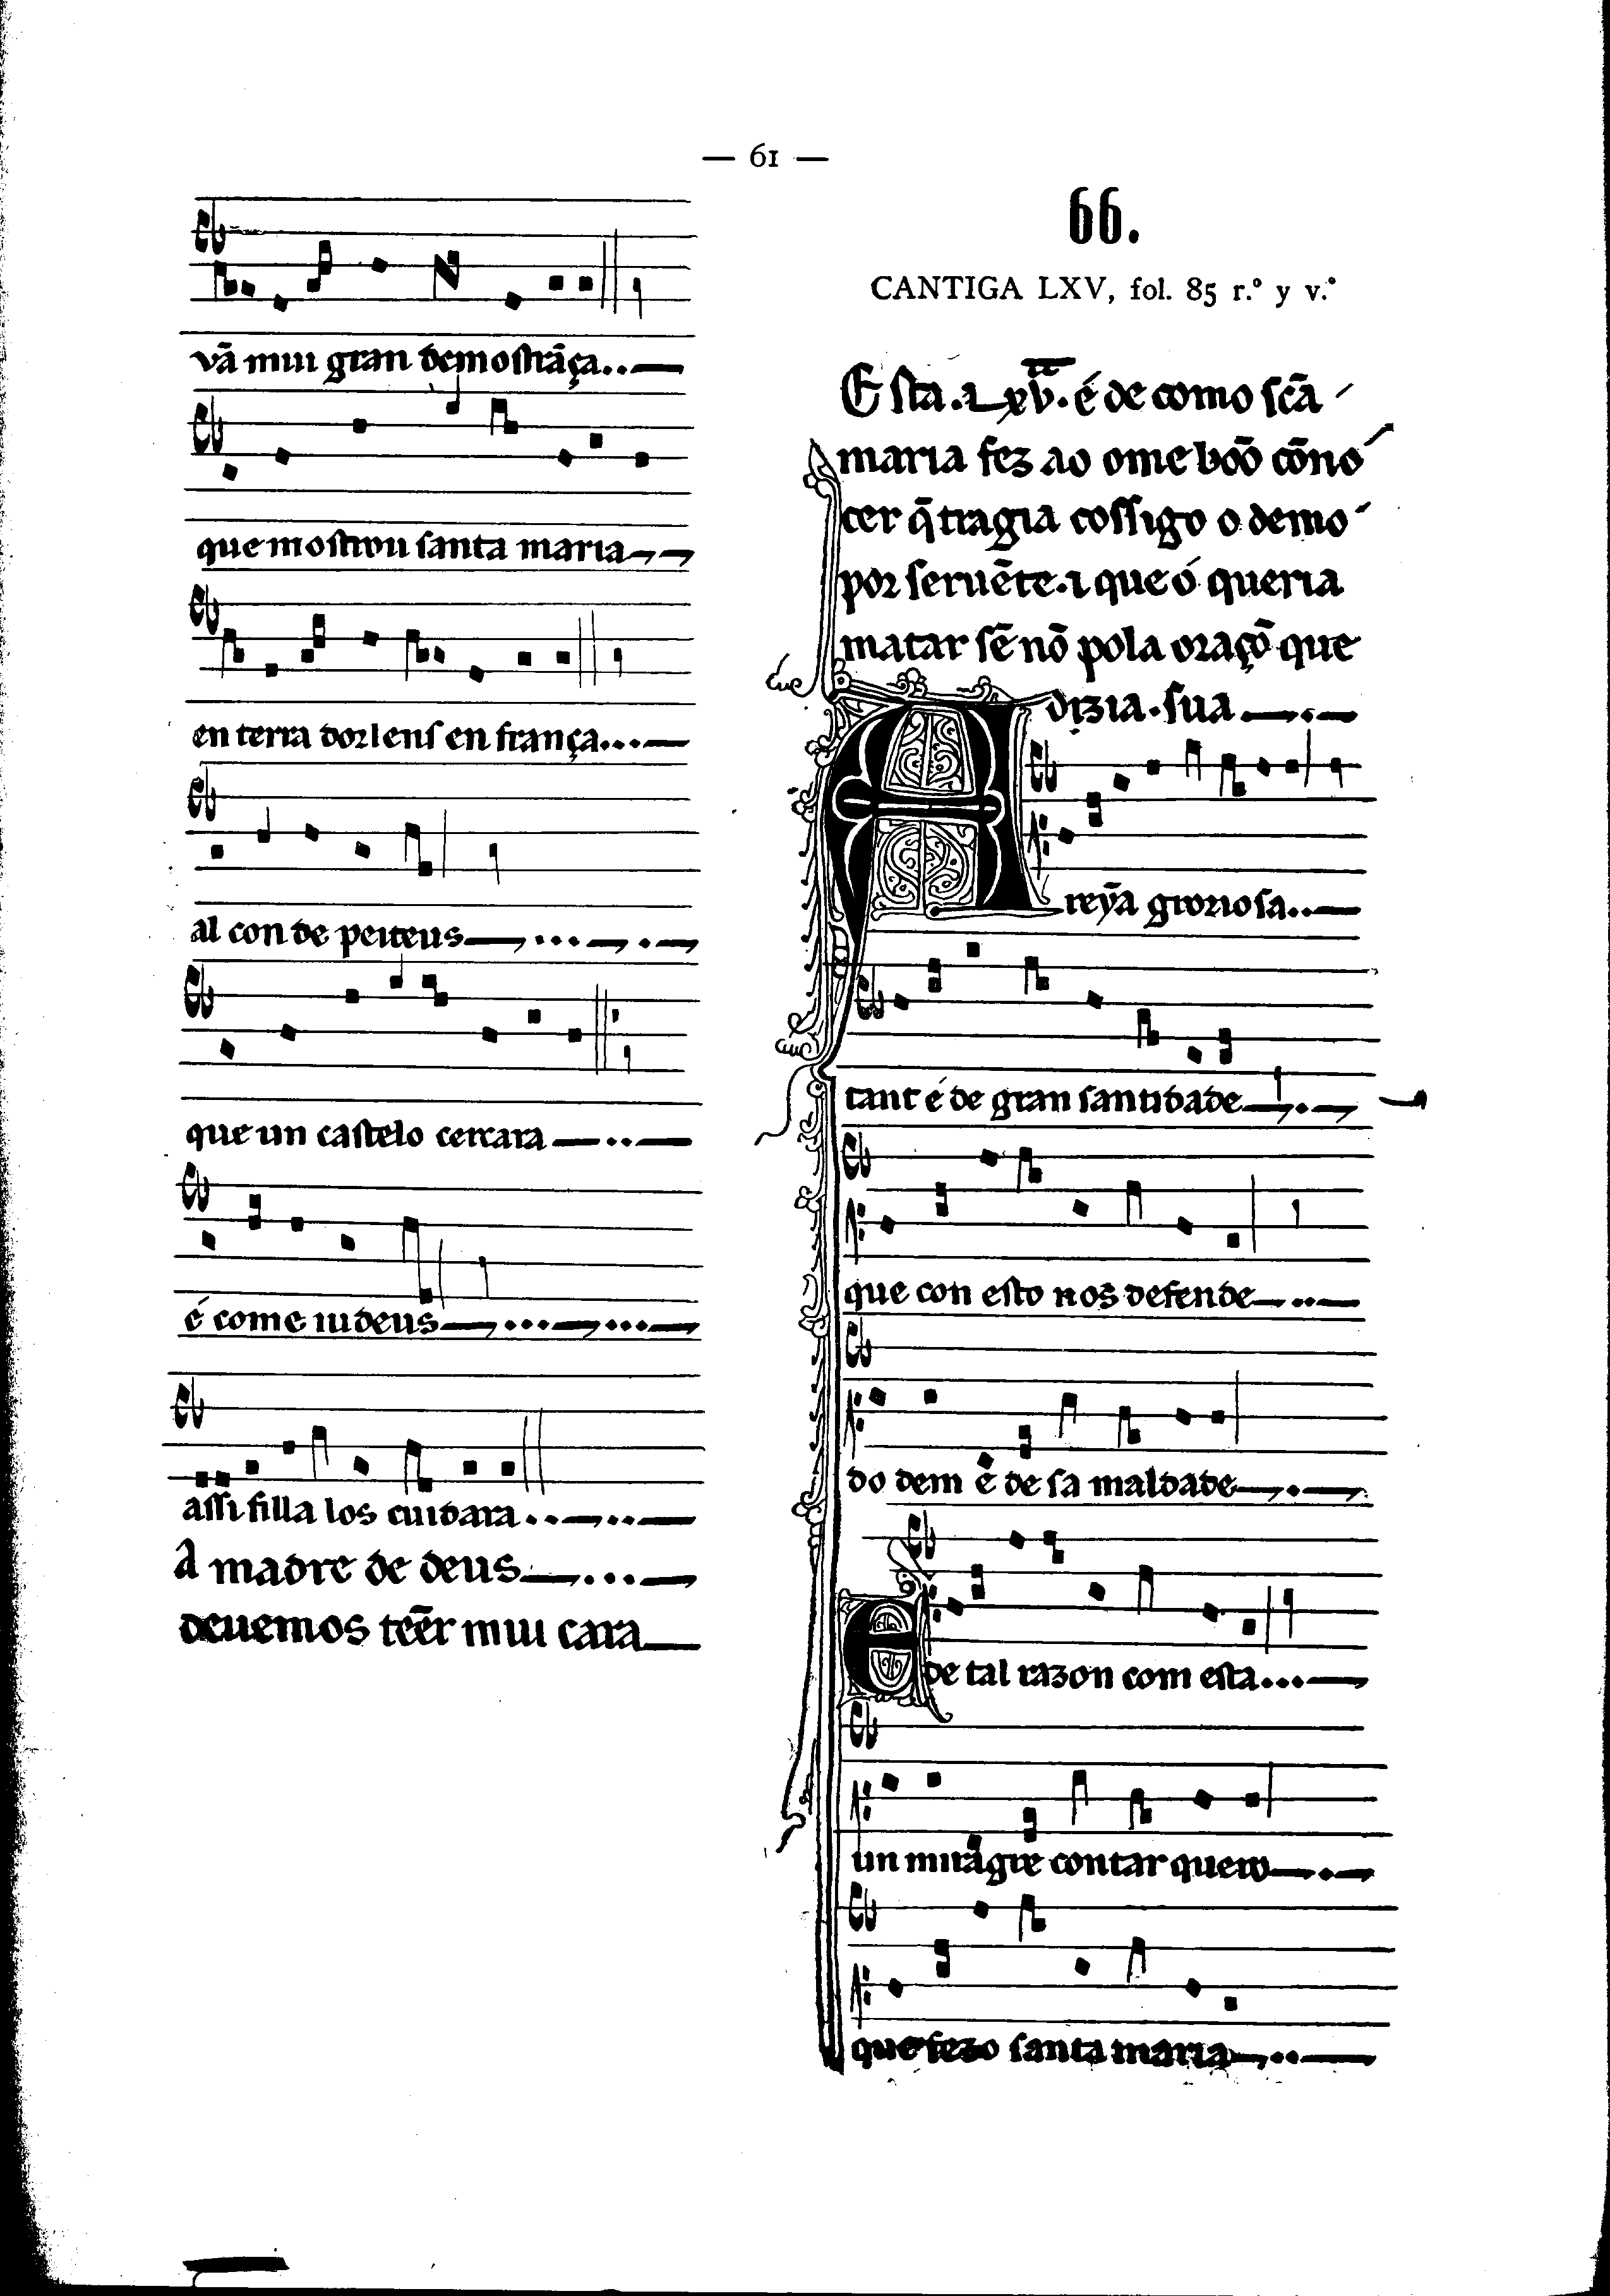 — 61 —
vā mui gran demostrāça
que mostrou santa maria
en terra dorlens en frança
al conde peiteus
que un castelo cercara
é come iudeus
assi filla los cuidara
A madre de deus
deuemos teēr mui cara
66.
CANTIGA LXV, fol. 85 r.º y v.º
Esta . é de como scā
maria fez ao ome bōo cōno
cer q̄ tragia cossigo o demo
por seruēte. ⁊ que ó queria
matar sē nō pola oraçō que
dizia. sua
A reỹa groriosa
tant é de gran santidade
que con esto nos defende
do dem é de sa maldade
E de tal razon com esta
un miragre contar quero
que fezo santa maria